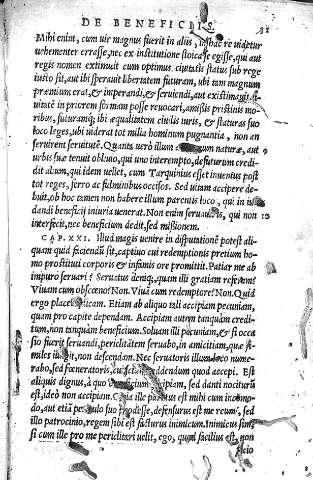 DE BENEFICIIS.
Mihi enim, cum uir magnus fuerit in aliis, in hac re uidetur
uehementer errasse, nec ex institutione stoica se egisse, qui aut
regis nomen extimuit cum optimus ciuitatis status sub rege
iusto sit, aut ibi sperauit libertatem futuram, ubi tam magnum
præmium erat, & imperandi, & seruiendi, aut existimauit ci-
uitatē in priorem formam posse reuocari, amissis pristinis mo-
ribus, futuramq; ibi æqualitatem ciuilis iuris, & staturas suo
loco leges, ubi uiderat tot milia hominum pugnantia, non an
seruirent sed utri. Quanta uerò illum natura, aut
urbis suæ tenuit obliuio, qui uno interempto, defuturum credi-
dit alium, qui idem uellet, cum Tarquinius esset inuentus post
tot reges, ferro ac fulminibus occisos. Sed uitam accipere de-
buit, ob hoc tamen non habere illum parentis loco, qui in ius
dandi beneficij iniuria uenerat. Non enim seruauit is, qui non
interfecit, nec beneficium dedit, sed missionem.
CAP. XXI. Illud magis uenire in disputationē potest ali-
quam quid faciendū sit, captiuo cui redemptionis pretium ho-
mo prostituti corporis & infamis ore promittit. Patiar me ab
impuro seruari? Seruatus deinde, quam illi gratiam referam?
Viuam cum obscœno? Non. Viuā cum redemptore? Non. Quid
ergo placeat dicam. Etiam ab aliquo tali accipiam pecuniam,
quam pro capite dependam. Accipiam autem tanquam credi-
tum, non tanquam beneficium. Soluam illi pecuniam, & si occa-
sio fuerit seruandi, periclitātem seruabo, in amicitiam, quæ si-
miles iungit, non descendam. Nec seruatoris illum loco nume-
rabo, sed fœneratoris, cui sciam reddendum quod accepi. Est
aliquis dignus, à quo beneficium accipiam, sed danti nociturū
est, ideò non accipiam. Quia ille paratus est mihi cum incōmo-
do, aut etiā periculo suo prodesse, defensurus est me reum, sed
illo patrocinio, regem sibi est facturus inimicum. Inimicus sum,
si cum ille pro me periclitari uelit, ego, quod facilius est, non
facio